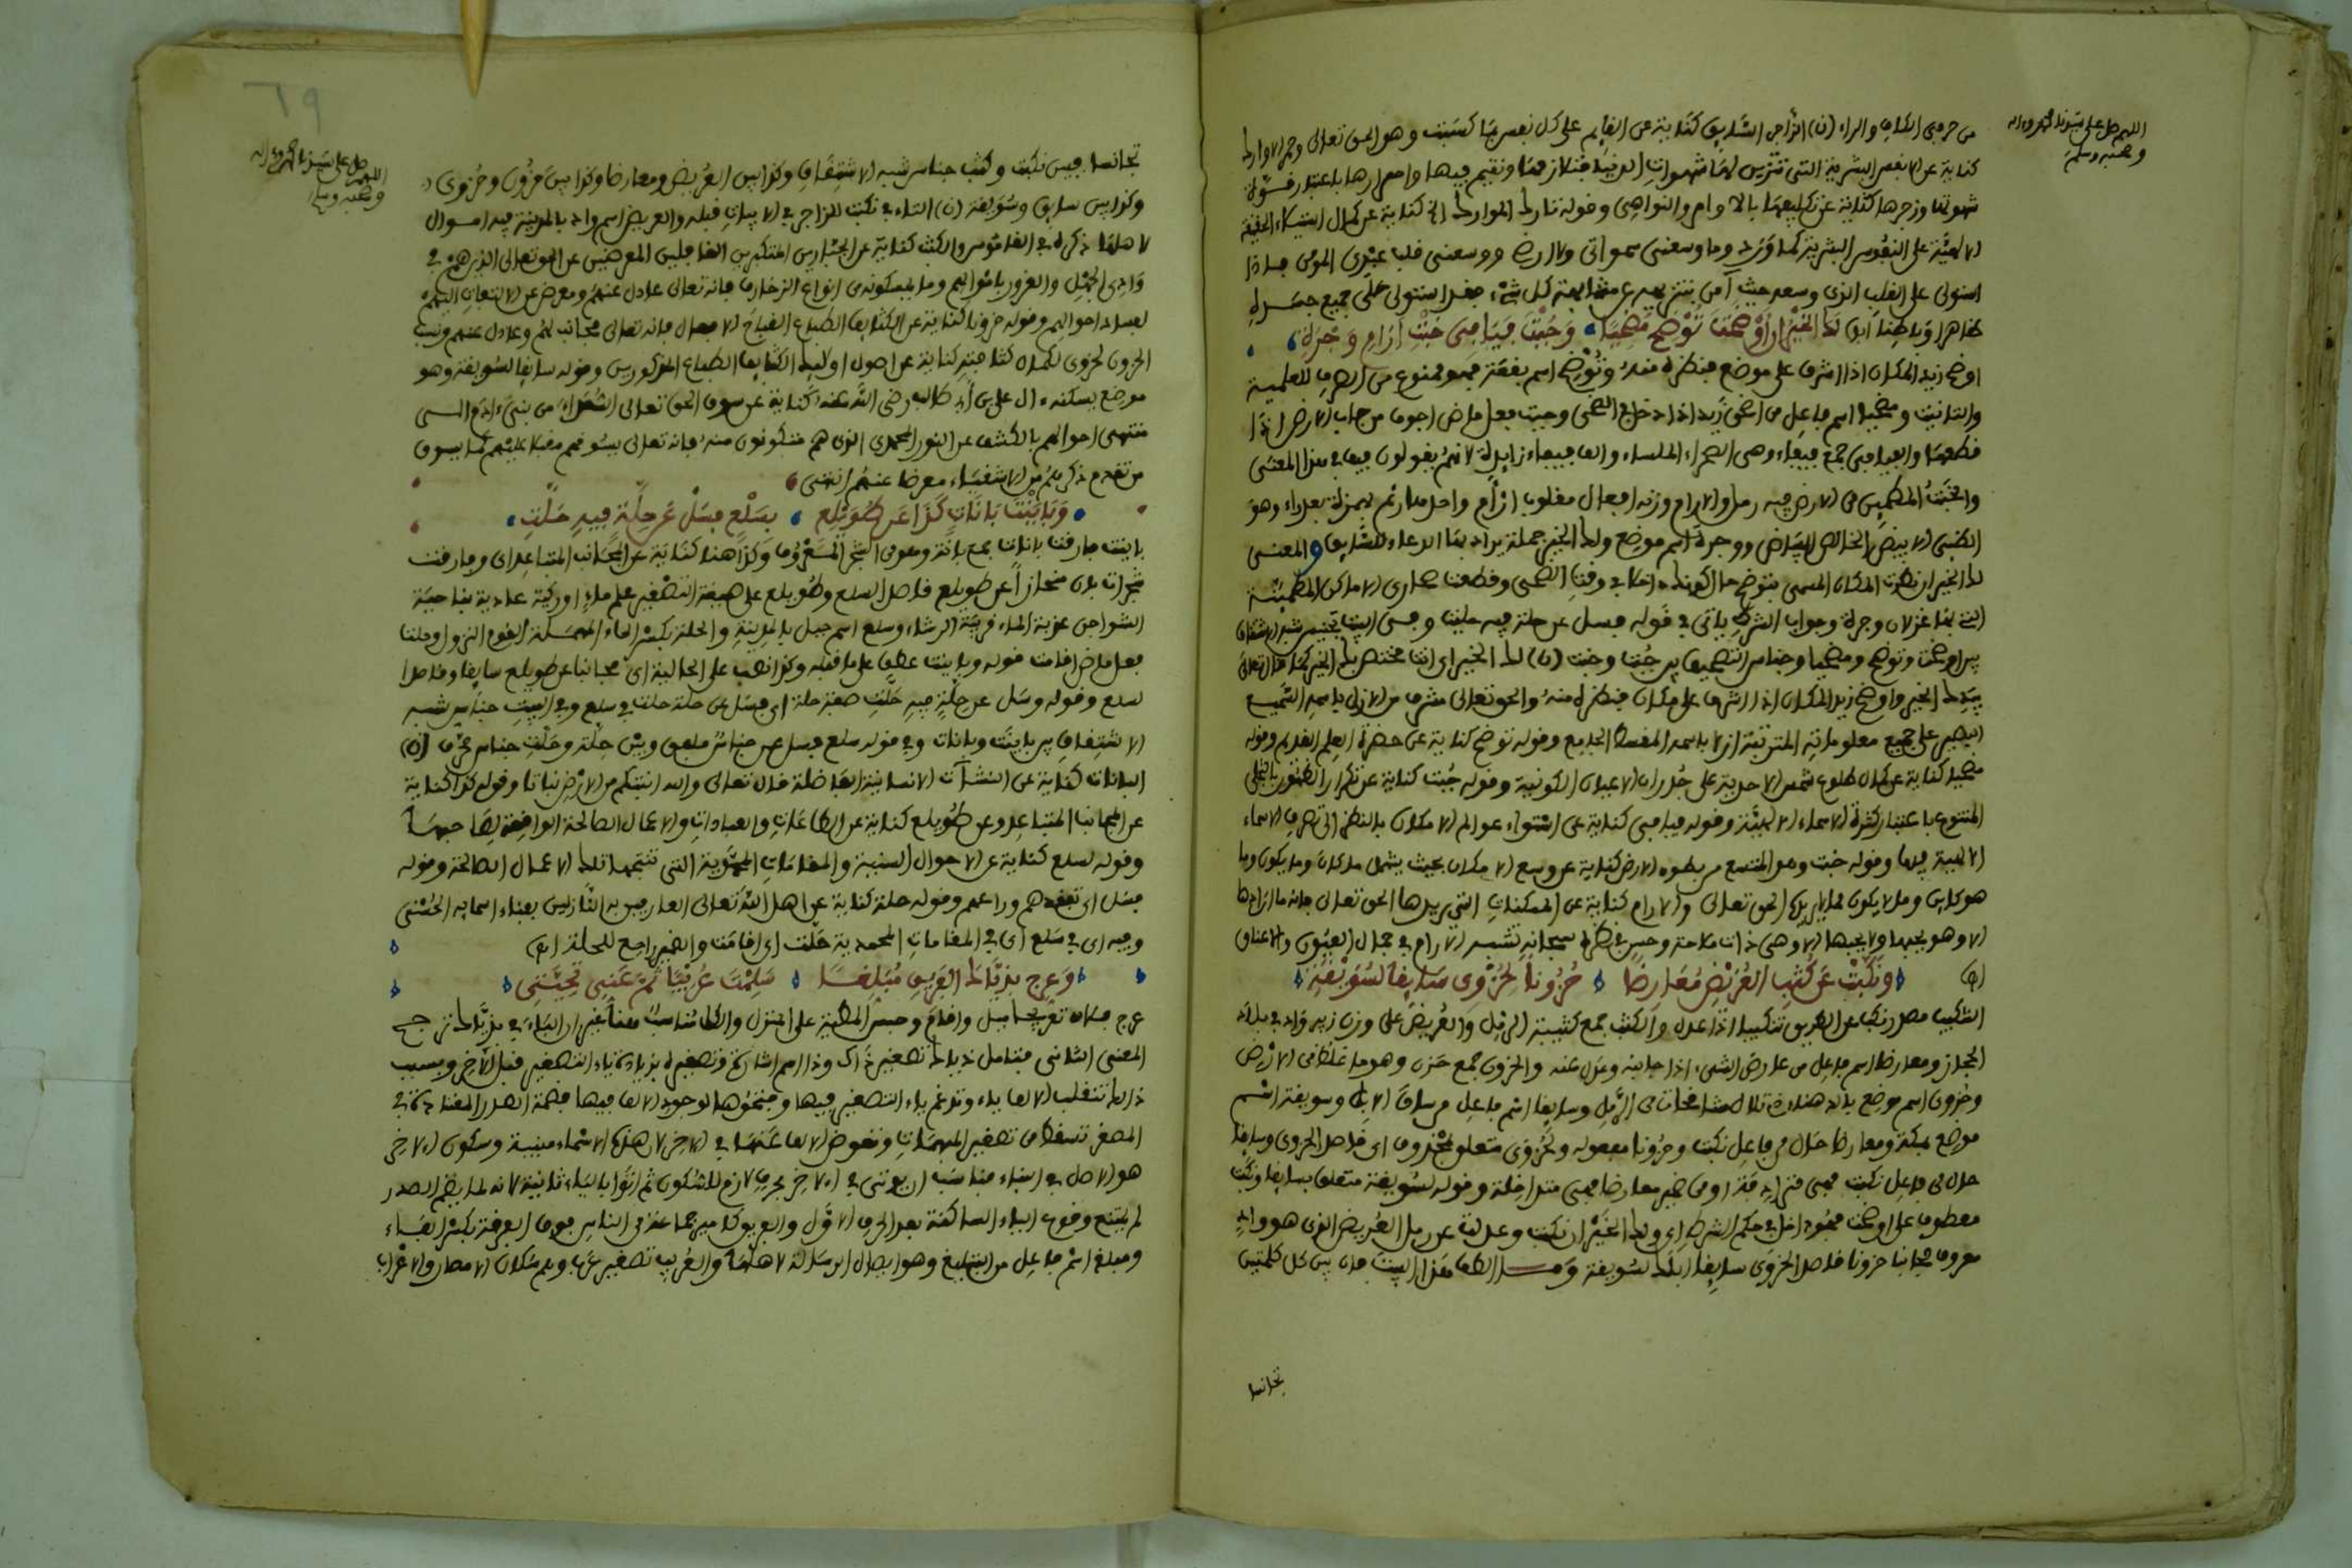 اللهم صل على سيدنا محمد وآله
وصحبه وسلم
من حرفي الكاف والراء (ن) الزاجر السايق كناية عن القايم على كل نفس بما كسبت وهو الحق تعالى وحمر الاوارك
كناية عن الانفس البشرية التي شهوات الدنيا فتلازمها وتقيم فيها واصفرارها باعتبار قوة
شهوتها وزجرها كناية عن تكليفها بالاوامر والنواهي وقوله تارك الموارك الخ كناية عن كمال استيلاء الحقيقة
الالهية على النفوس البشرية كما ورد وما وسعني سمواتي ولا ارضي ووسعني قلب عبدي المومن فاذا
استولى على القلب الذي وسعه حيث آمن بتنزيهه عن مشابهة كل شيء فقد استولى على جميع جسده
ظاهرا وباطنا انتهى لك الخير ان اوضحت توضح مضحيا وجبت فيافي خبت آرام وجرة
اوضح زيد المكان اذا اشرف على موضع فنظره منه وتوضح اسم بقعة فهو ممنوع من الصرف للعلمية
والتانيث ومضحيا اسم فاعل من اضحى زيد اذا دخل في الضحى وجبت فعل ماض اجوف من جاب الارض اذا
قطعها والفيافي جمع فيفاء وهي الصحراء الملساء والف فيفاء زايدة لانهم يقولون فيف في هذا المعنى
والخبت المطمين من الارض فيه رمل والارام وزنه افعال مقلوب ازام واحدها رئم بهمزة بعد راء وهو
الظبي الابيض الخالص البياض ووجرة اسم موضع ولك الخير جملة يراد بها الدعاء للسايق والمعنى
لك الخير ان نظرت المكان المسمى بتوضح حال كونك داخلا في وقت الضحى وقطعت صحارى الاماكن المطمينة
التي بها غزلان وجرة وجواب الشرط ياتي في قوله فسل عن حلة فيه حلت وفي البيت تجنيس شبه الاشتقاق
بين اوضحت وتوضح ومضحيا وجناس التصحيف بين جبت وخبت (ن) لك الخير اي انت مختص بك الخير كما قال تعالى
بيدك الخير واوضح زيد المكان اذا اشرف على مكان فنظره منه والحق تعالى مشرف من الازل باسمه السميع
البصير على جميع معلوماته المترتبة ازلا باسمه المقسط الجامع وقوله توضح كناية عن حضرة العلم القديم وقوله
مضحيا كناية عن كمال طلوع شمس الاحدية على جدران الاعيان الكونية وقوله جبت كناية عن تكرار الظهور بالتجلي
المتنوع باعتبار كثرة الاسماء الالهية وقوله فيافي كناية عن استواء عوالم الامكان بالنظر الى تصرف الاسماء
الالهية فيها وقوله خبت وهو المتسع من بطون الارض كناية عن وسع الامكان بحيث يشمل ما كان وما يكون وما
هو كاين وما لا يكون مما لا يريده الحق تعالى والارام كناية عن الممكنات التي يريدها الحق تعالى فانه ما ارادها
الا وهو يحبها ولا يحبها الا وهي ذات ملاحة وحسن في نظره سبحانه تشبه الارام في جمال العيون والاعناق
(انتهى) ونكبت عن كثب العريض معارضا حزونا لحزوى سايقا لسويقة
التنكيب مصدر نكب عن الطريق تنكيبا اذا عدل والكثب جمع كثيب الرمل والعريض على وزن زبير واد في بلاد
الحجاز ومعارضا اسم فاعل من عارض الشيء اذا جانبه وعدل عنه والحزون جمع حزن وهو ما غلظ من الارض
وحزوى اسم موضع بالدهناء وسايقا اسم فاعل من ساق الابل وسويقة اسم
موضع بمكة ومعارضا حال من فاعل نكبت وحزونا مفعوله ولحزوى متعلق بمحذوف اي قاصدا لحزوى وسايقا
حال من فاعل نكبت فهي مترادفة او من ضمير معارضا فهي متداخلة وقوله لسويقة متعلق بسايقا ونكبت
معطوف على اوضحت فهو داخل في حكم الشرط اي ولك الخير ان نكبت وعدلت عن رمل العريض الذي هو واد
معروف مجانبا حزونا قاصدا لحزوى سايقا ابلك لسويقة وما الطف هذا البيت فان بين كل كلمتين
تجانسا
٦٩
اللهم صل على سيدنا محمد وآله
وصحبه وسلم
تجانسا فبين نكبت وكثب جناس شبه الاشتقاق وكذا بين العريض ومعارضا وكذا بين حزون وحزوى
وكذا بين سايق وسويقة (ن) التاء في نكبت للزاجر في الابيات قبله والعريض اسم واد بالمدينة فيه اموال
لاهلها ذكره في القاموس والكثب كناية عن الجبارين المتكبرين الغافلين المعرضين عن الحق تعالى الذين هم في
وادي الجهل والغرور باموالهم وما يمسكونه من انواع الزخارف فانه تعالى عادل عنهم ومعرض عن الالتفات اليهم
لفساد احوالهم وقوله حزونا كناية عن الكثايف الطباع القباح الافعال فانه تعالى مجانب لهم وعادل عنهم ونسب
الحزون لحزوى لكمال كثافته كناية عن اصول اوليك الكثايف الطباع المذكورين وقوله سايقا لسويقة وهو
موضع يسكنه ءال علي بن أبي طالب رضي الله عنه كناية عن سوق الحق تعالى الشعراء من بنيء ادم الى
منتهى احوالهم بالكشف عن النور المحمدي الذي هم متكونون منه فانه تعالى يسوقهم مقبلا عليهم كما يسوق
من تقدم ذكرهم من الاشقياء معرضا عنهم انتهى
وباينت بانات كذا عن طويلع بسلع فسل عن حلة فيه حلت
باينت فارقت بانات جمع بانة وهو من الشجر المعروف وكذا هنا كناية عن الجانب المتباعد اي وفارقت
شجرات بان منحازا عن طويلع قاصدا لسلع وطويلع على صيغة التصغير علم ماء او ركية عادية بناحية
الشواجن عذبة الماء قريبة الرشاء وسلع اسم جبل بالمدينة والحلة بكسر الحاء المهملة القوم النزول وحلت
فعل ماض اقامت قوله وباينت عطف على ما قبله وكذا نصب على الحالية اي مجانبا عن طويلع سايقا وقاصدا
سلع وقوله وسل عن حلة فيه حلت صفة حلة اي فسل عن حلة حلت في سلع وفي البيت جناس شبه
الاشتقاق بين باينت وبانات وفي قوله سلع فسل عن جناس ملفق وبين حلة وحلت جناس محرف (ن)
البانات كناية عن النشآت الانسانية الفاضلة قال تعالى والله انبتكم من الارض نباتا وقوله كذا كناية
عن الجانب المتباعد وعن طويلع كناية عن الطاعات والعبادات والاعمال الصالحة الواقعة
وقوله لسلع كناية عن الاحوال السنية والمقامات المحمدية التي تنتجها تلك الاعمال الصالحة وقوله
فسل اي تفقدهم وراعهم وقوله حلة كناية عن اهل الله تعالى العارفين به النازلين بفناء اسمايه الحسنى
وفيه اي في سلع اي في المقامات المحمدية حلت اي اقامت والضمير راجع للحلة انتهى
وعرج بذياك الفريق مبلغا سلمت عريبا ثم عني تحيتي
عرج فلان تعريجا ميل واقام وحبس المطية على المنزل والكل مناسب هنا غير ان الباء في بذياك ترجح
المعنى الثاني فتامل ذياك تصغير ذاك وذا اسم اشارة وتصغيره بزيادة ياء التصغير قبل الآخر وبسبب
ذلك تنقلب الالف ياء وتدغم ياء التصغير فيها وفتحوها لوجود الالف فيها فضمة الصدر المعتادة في
المصغر تسقط من تصغير المبهمات وتعوض الالف عنها في الاخر لان هذه الاسماء مبنية وسكون الاخر
هو الاصل في البناء فناسب ان يوتى في الاخر بحرف لازم للسكون ثم اتوا بالياء ثانية لانه لما لم يضم الصدر
لم يمتنع وقوع الياء الساكنة بعد الحرف الاول والفريق كامير جماعة من الناس فوق الفرقة بكسر الفاء
ومبلغ اسم فاعل من التبليغ وهو ايصال الرسالة لاهلها والعريب تصغير عرب وهم سكان الامصار والاعراب